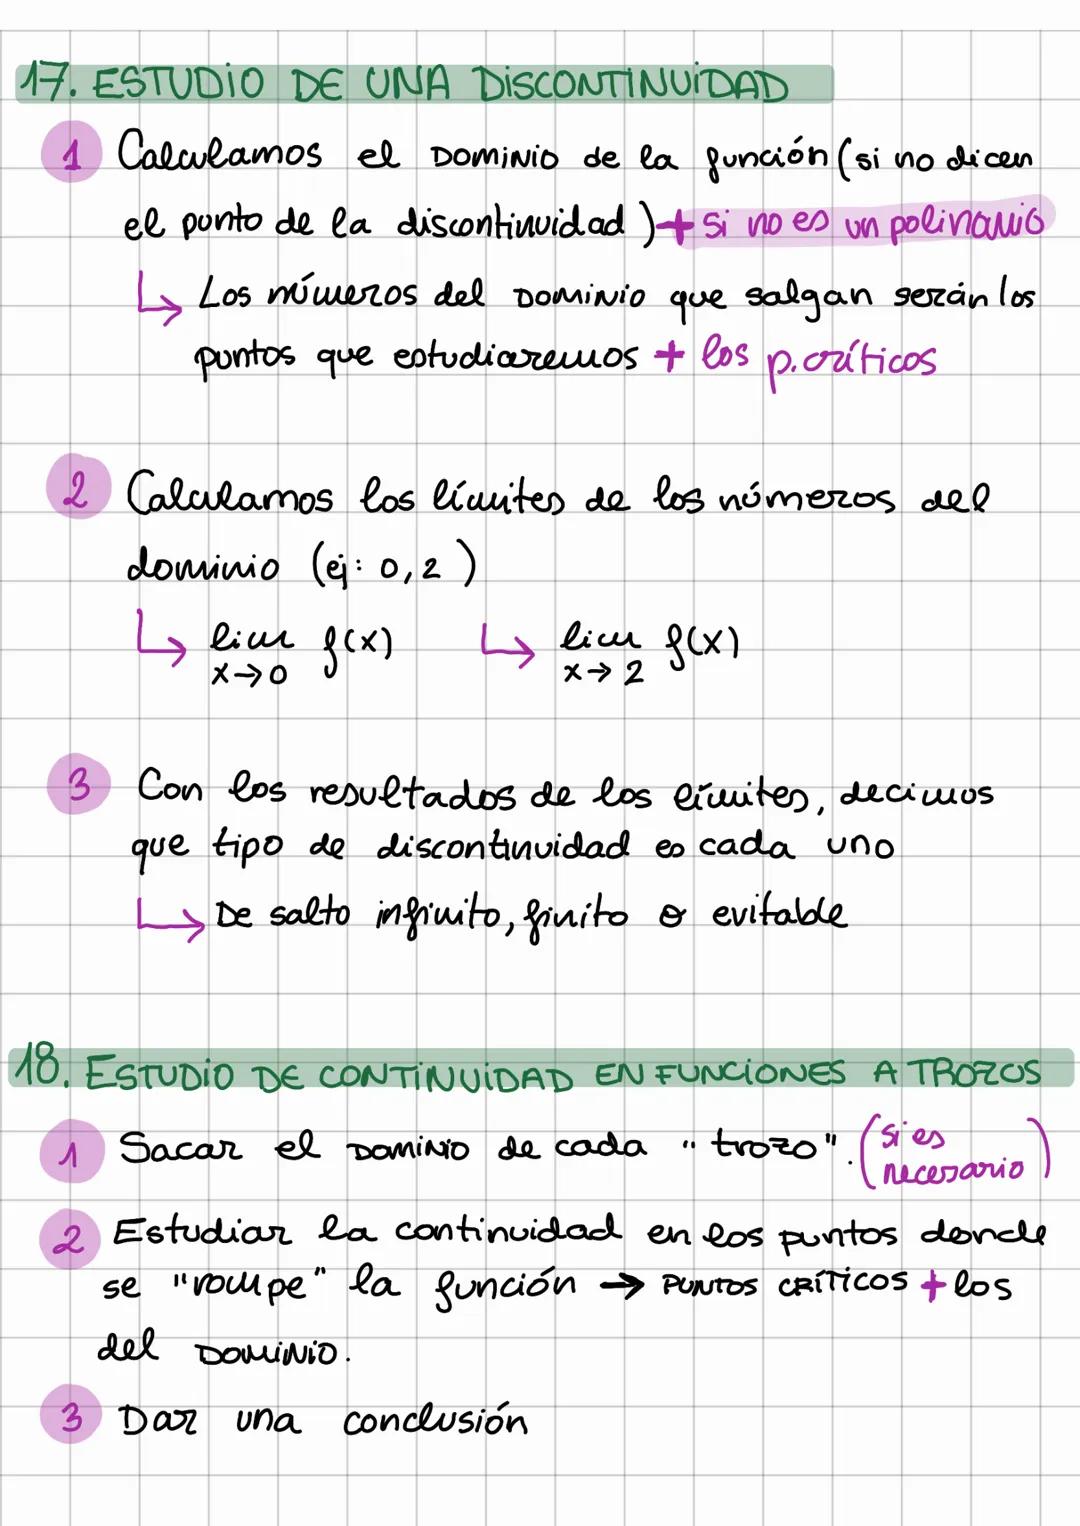 17. ESTUDIO DE UNA DISCONTINUIDAD
1 Calculamos el DOMINIO de la función (si no dicen
el punto de la discontinuidad) + si no es un polinomio
↳ Los números del DOMINIO que salgan serán los
puntos que estudiaremos + los p.críticos
2 Calculamos los límites de los números del
dominio (ej: 0,2)
↳ lim f(x) ↳ lim f(x)
x→0 x→2
3 Con los resultados de los límites, decimos
que tipo de discontinuidad es cada uno
↳ De salto infinito, finito o evitable
18. ESTUDIO DE CONTINUIDAD EN FUNCIONES A TROZOS
1 Sacar el DOMINIO de cada "trozo". (si es
necesario)
2 Estudiar la continuidad en los puntos donde
se "rompe" la función → PUNTOS CRÍTICOS + los
del DOMINIO.
3 Dar una conclusión